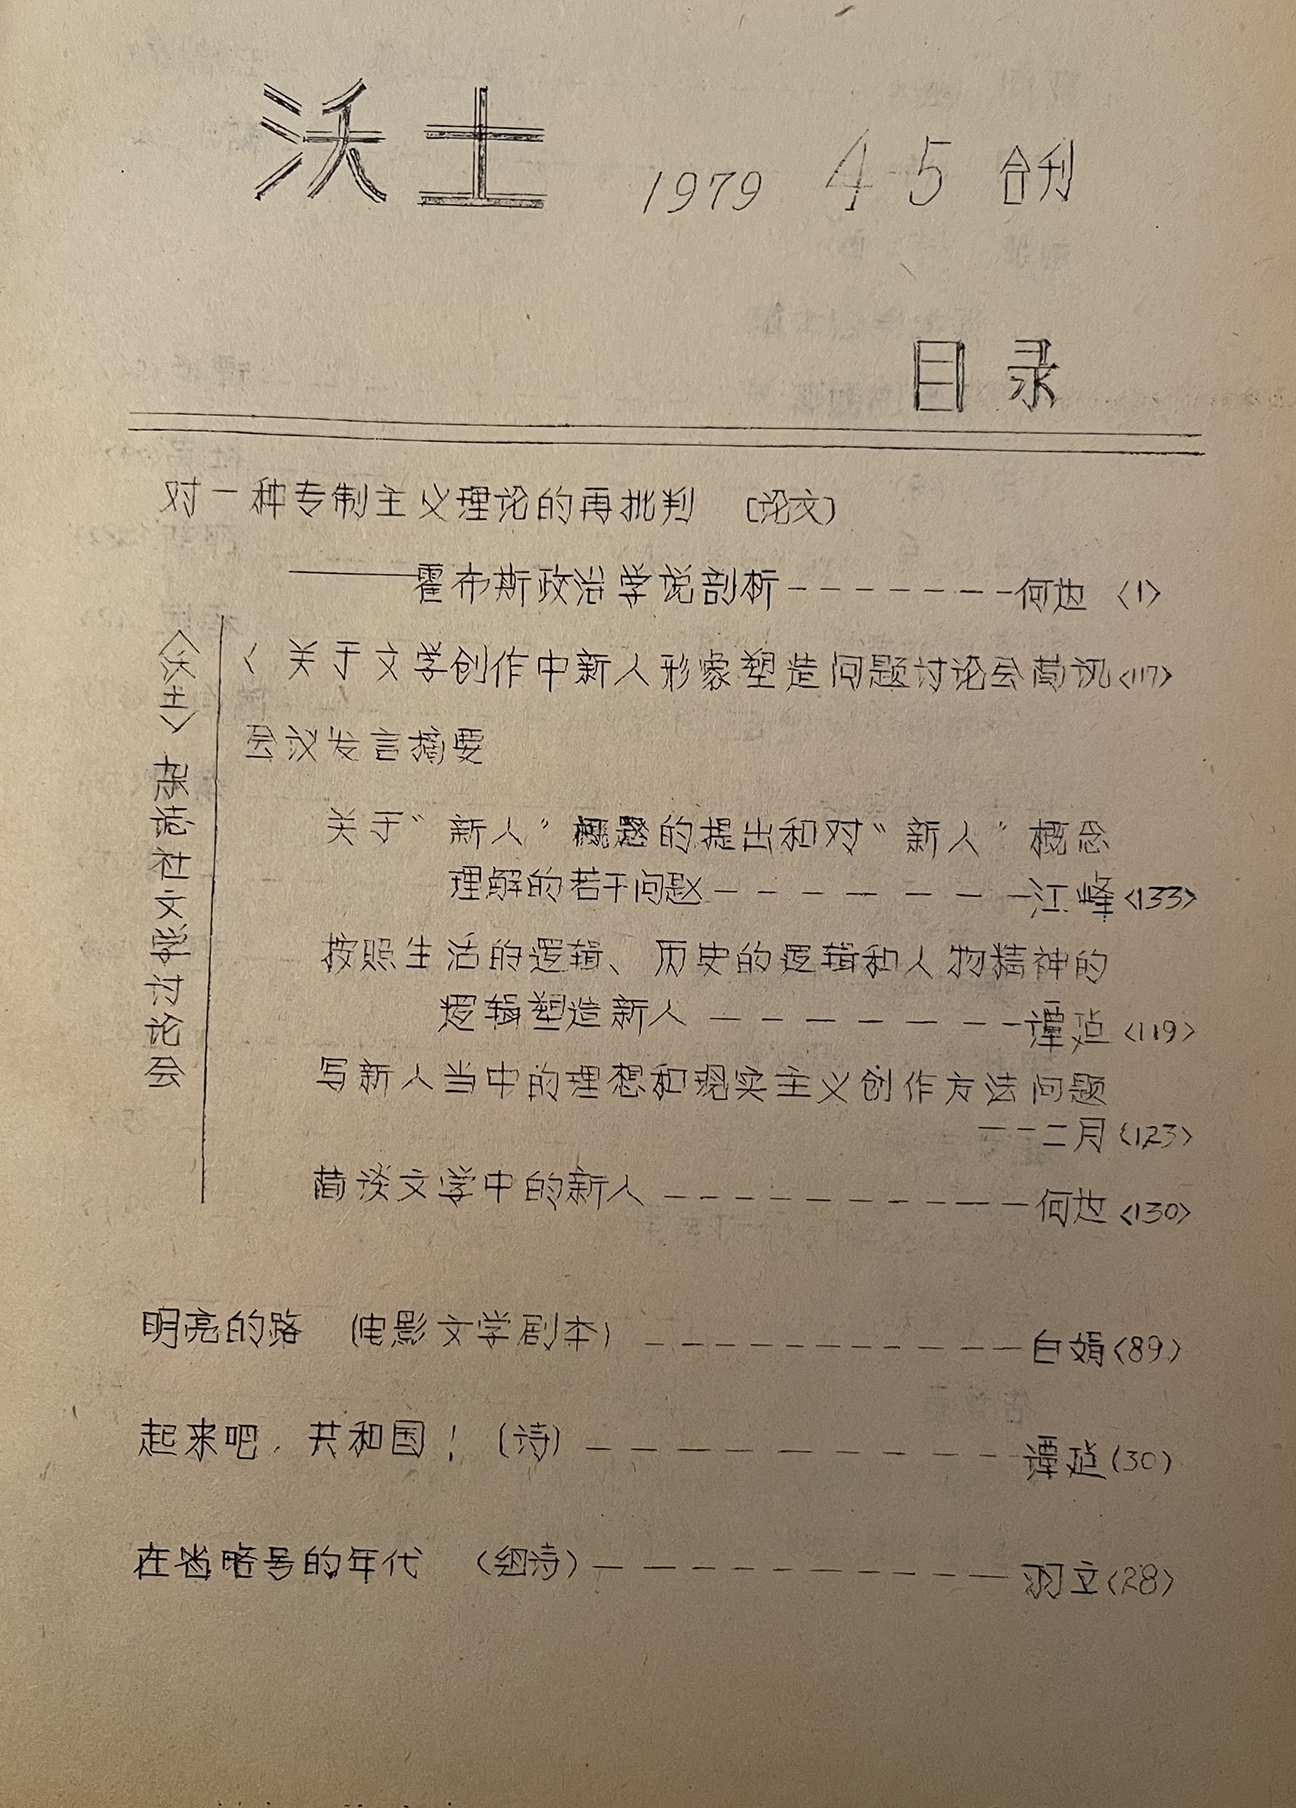 沃土 1979 4 5 合刊
目录
对一种专制主义理论的再批判 〔论文〕
——霍布斯政治学说剖析-------何边〈1〉
〈沃土〉杂志社文学讨论会
〈关于文学创作中新人形象塑造问题讨论会简讯〈117〉
会议发言摘要
关于“新人”概念的提出和对“新人”概念
理解的若干问题-------江峰〈133〉
按照生活的逻辑、历史的逻辑和人物精神的
逻辑塑造新人-------谭〈119〉
写新人当中的理想和现实主义创作方法问题
--二月〈123〉
简谈文学中的新人---------何边〈130〉
明亮的路 (电影文学剧本)---------白娟〈89〉
起来吧,共和国！〔诗〕----------谭(30)
在省略号的年代 (组诗)----------羽立〈28〉